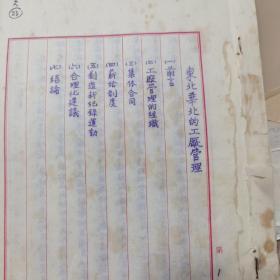 東北華北的工厰管理
(一)前言
(二)工厰管理的組織
(三)集体合同
(四)薪給制度
(五)創造新紀錄運動
(六)合理化建議
(七)結論
第
1